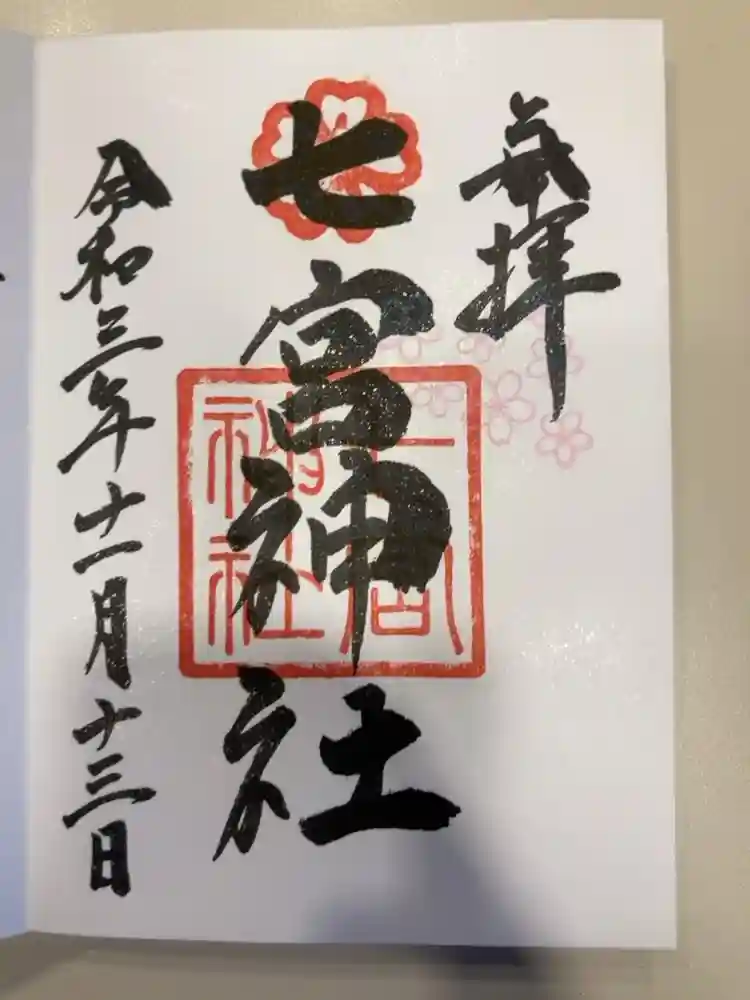 奉拝
七宮神社
七宮
神社
令和三年十一月十三日